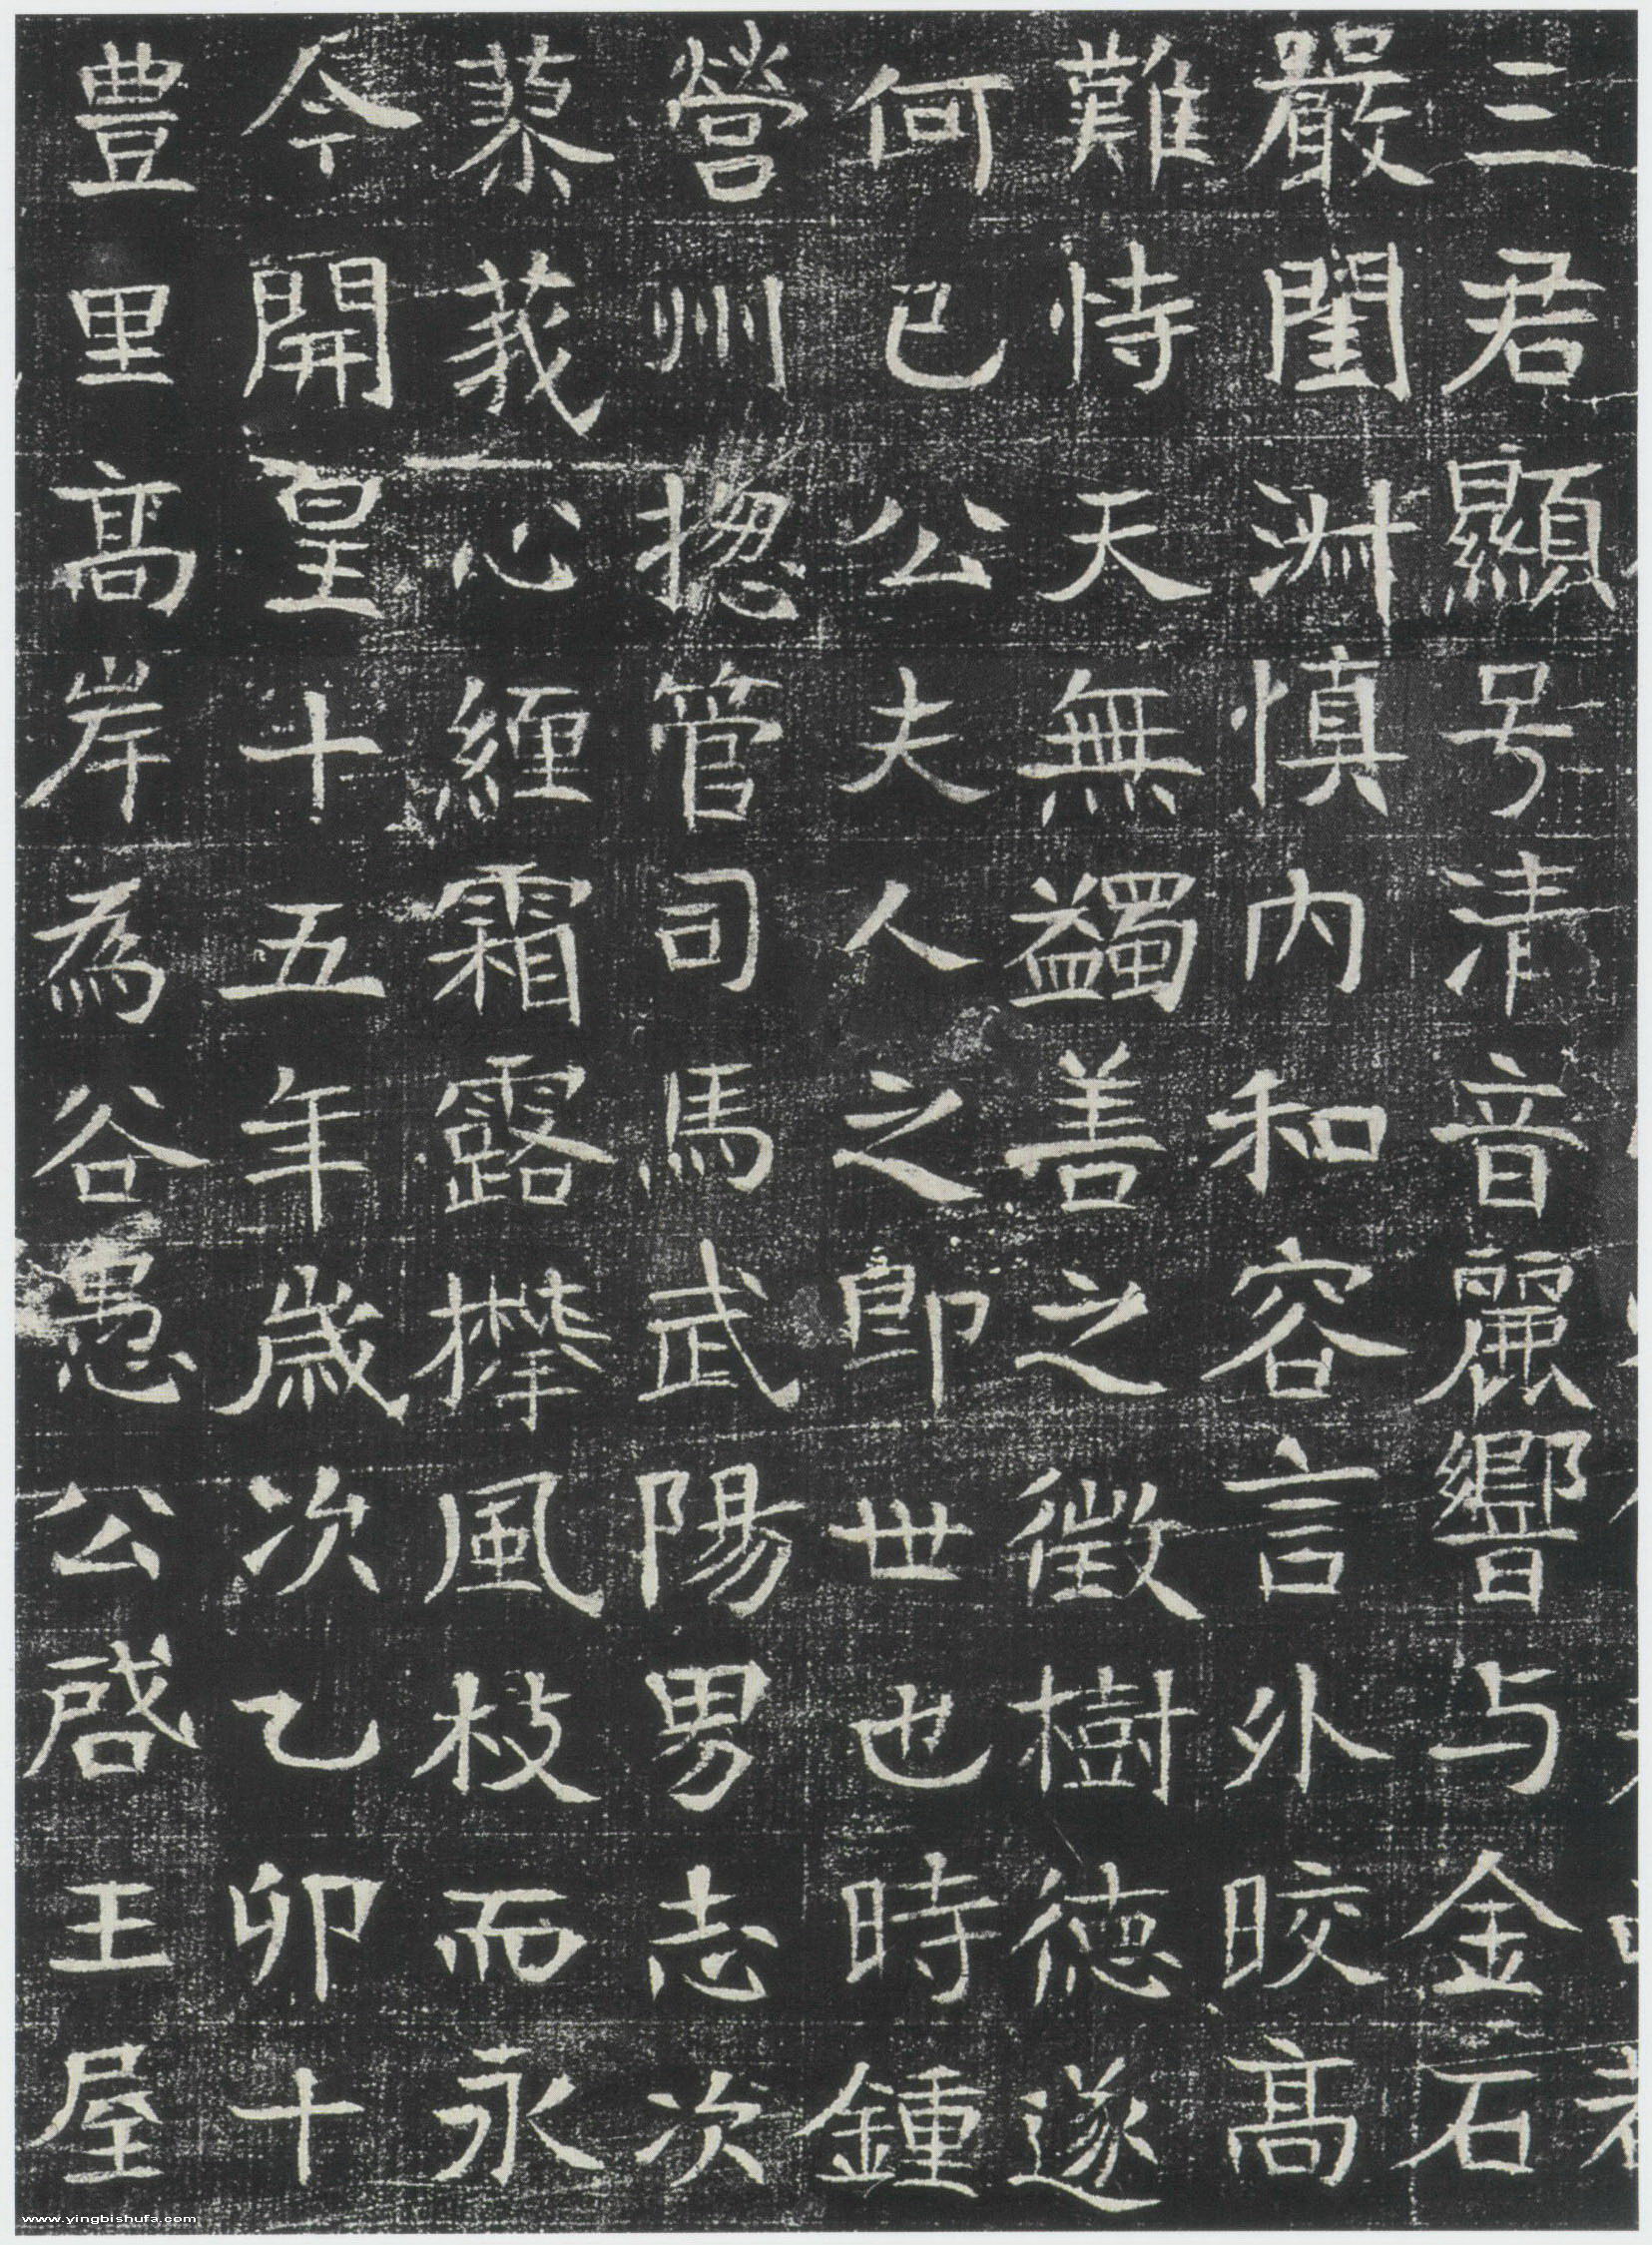 三君顯号清音麗響与金石
嚴閨淋慎內和容言外晈高
難恃天無蠲善之徵樹德遂
何已公夫人之即世也時鍾
營州揔管司馬武陽男志次
蓼莪心纏霜露攀風枝而永
今開皇十五年歲次乙卯十
豊里高岸為谷愚公啓王屋
www.yingbishufa.com